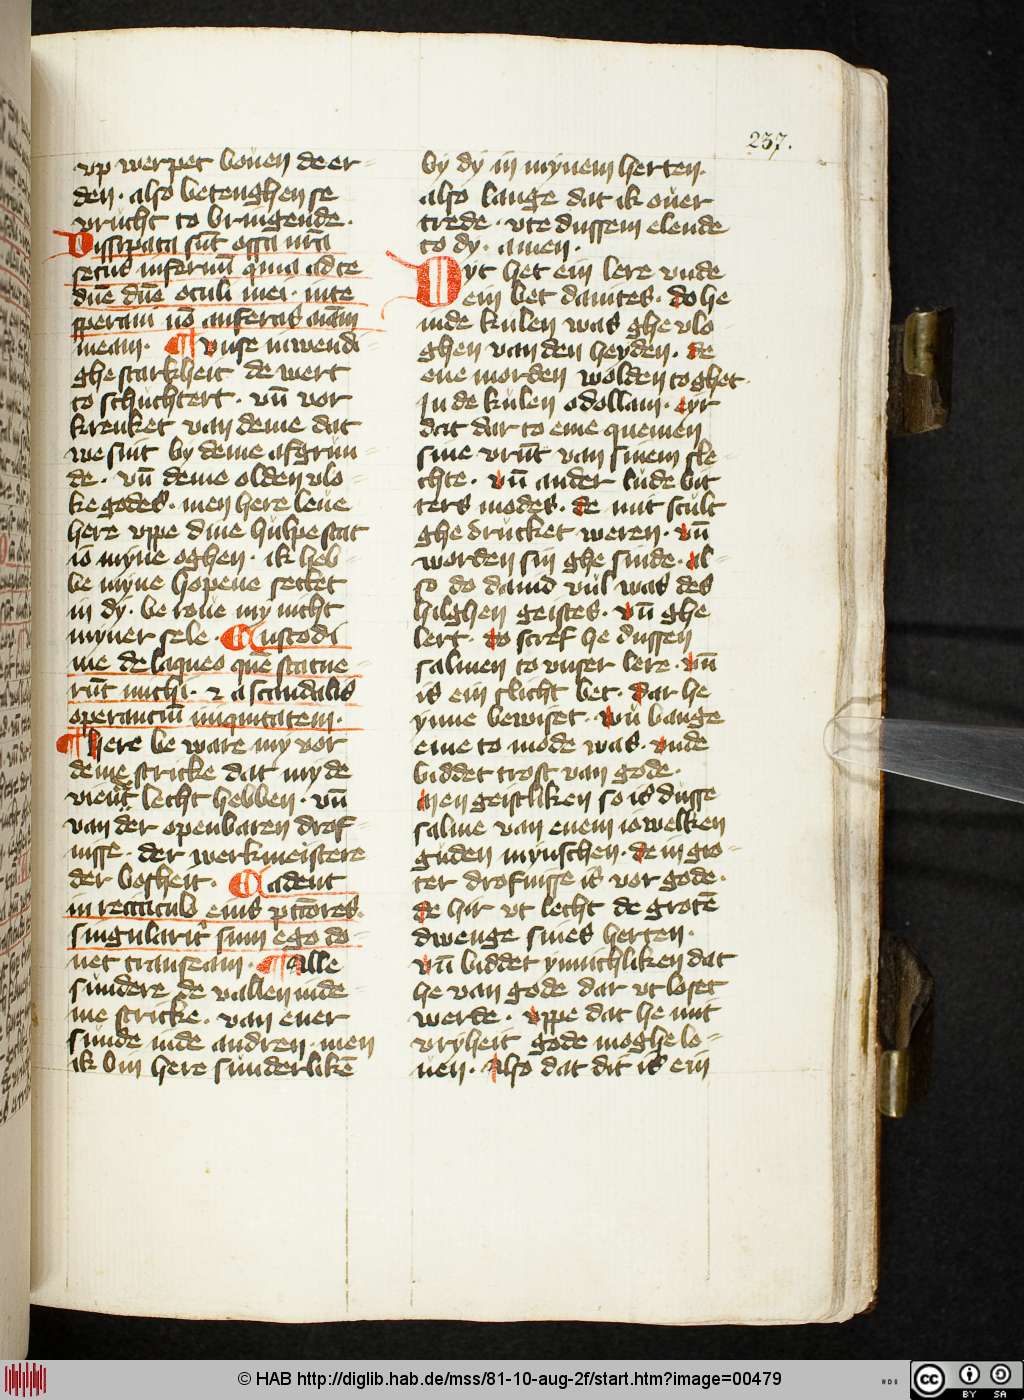 237.
vp werpet bouen de er-
den · also betenghen se
vrucht to bringende ·
Dissipata sūt ossa nr̄a
secus infernū quia ad te
dn̄e dn̄e oculi mei · in te
speraui nō auferas aīam
meam · ¶ vnse inwendi-
ghe starkheit de wert
to schuchtert · vn̄ vor
krenket van deme dat
we sint by deme afgrun-
de · vn̄ deme olden vlo-
ke godes · men here leue
here vppe dine hulpe stat
io myne oghen · ik heb-
be myne hopene settet
in dy · be roue my nicht
myner sele · Custodi
me de laqueo quē statue-
rūt michi · ⁊ a scandalis
operanciū iniquitatem ·
¶ here be ware my vor
deme stricke dat my de
viēt lecht hebben · vn̄
van der openbaren drof-
nisse · der werkmeistere
der bosheit · Cadent
in reciaculo eius pctōres ·
singularit̉ sum ego do-
nec transeam · ¶ Alle
sundere de vallen inde-
me stricke · van ener
sunde inde andren · men
ik bin here sunderlikē
by dy in mynem herten ·
also lange dat ik ouer
trede · vte dussem elende
to dy · amen ·
Dyt het ein lere vnde
ein bet dauites · do he
inde kulen was ghe vlo-
ghen van den heyden · de
ene morden wolden to ghet ·
In de kulen odollam · eyr
dat dar to eme quemen
sine vrūt van sinem sle-
chte · vn̄ ander lude bit
ters modes · de mit scult
ghe drucket weren · vn̄
worden sin ghe sinde · al-
so do dauid vul was des
hilghen geistes · vn̄ ghe
lert · to scref he dussen
salmen to vnser lere · vn̄
is ein slicht bet · dar he
ynne bewiset · wu bange
eme to mode was · vnde
biddet trost van gode ·
men geistliken so is dusse
salme van enem iowelken
guden mynschen · de in gro-
ter drofnisse is vor gode ·
de hir vt lecht de grotē
dwenge sines herten ·
vn̄ biddet ynnichliken dat
he van gode dar vt loset
werde · vppe dat he mit
vryheit gode moghe lo-
uen · Also dat dit is ein
© HAB http://diglib.hab.de/mss/81-10-aug-2f/start.htm?image=00479
cc BY SA